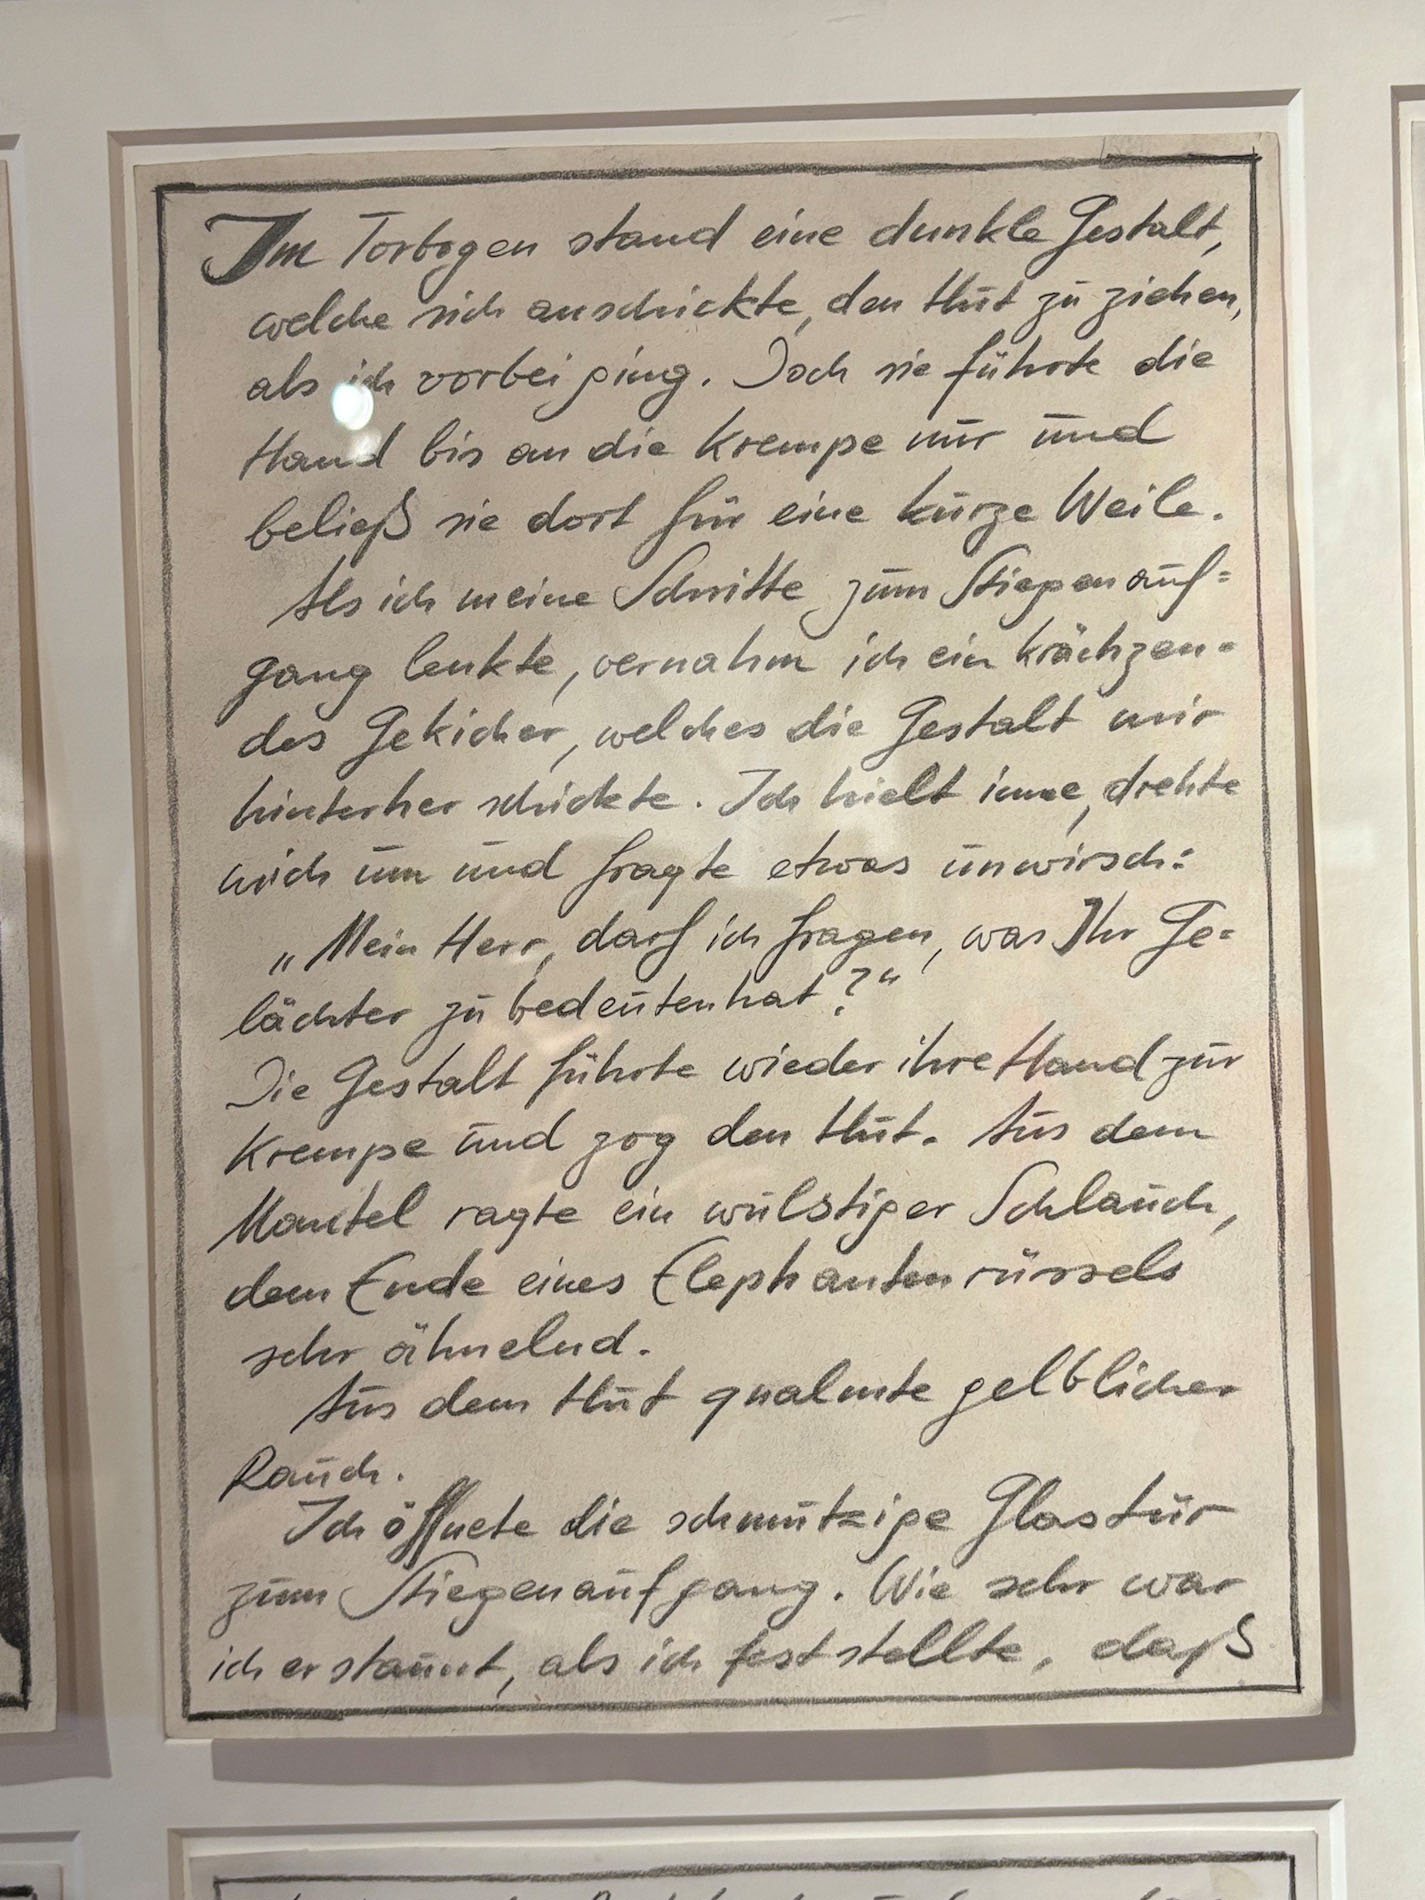 Im Torbogen stand eine dunkle Gestalt,
welche sich anschickte, den Hut zu ziehen,
als ich vorbei ging. Doch sie führte die
Hand bis an die Krempe nur und
beließ sie dort für eine kurze Weile.
Als ich meine Schritte zum Stiegenauf=
gang lenkte, vernahm ich ein krächzen=
des Gekicher, welches die Gestalt mir
hinterher schickte. Ich hielt inne, drehte
mich um und fragte etwas unwirsch:
„Mein Herr, darf ich fragen, was Ihr Ge=
lächter zu bedeuten hat?“
Die Gestalt führte wieder ihre Hand zur
Krempe und zog den Hut. Aus dem
Mantel ragte ein wulstiger Schlauch,
dem Ende eines Elephantenrüssels
sehr ähnelnd.
Aus dem Hut qualmte gelblicher
Rauch.
Ich öffnete die schmutzige Glastür
zum Stiegenaufgang. Wie sehr war
ich erstaunt, als ich feststellte, daß